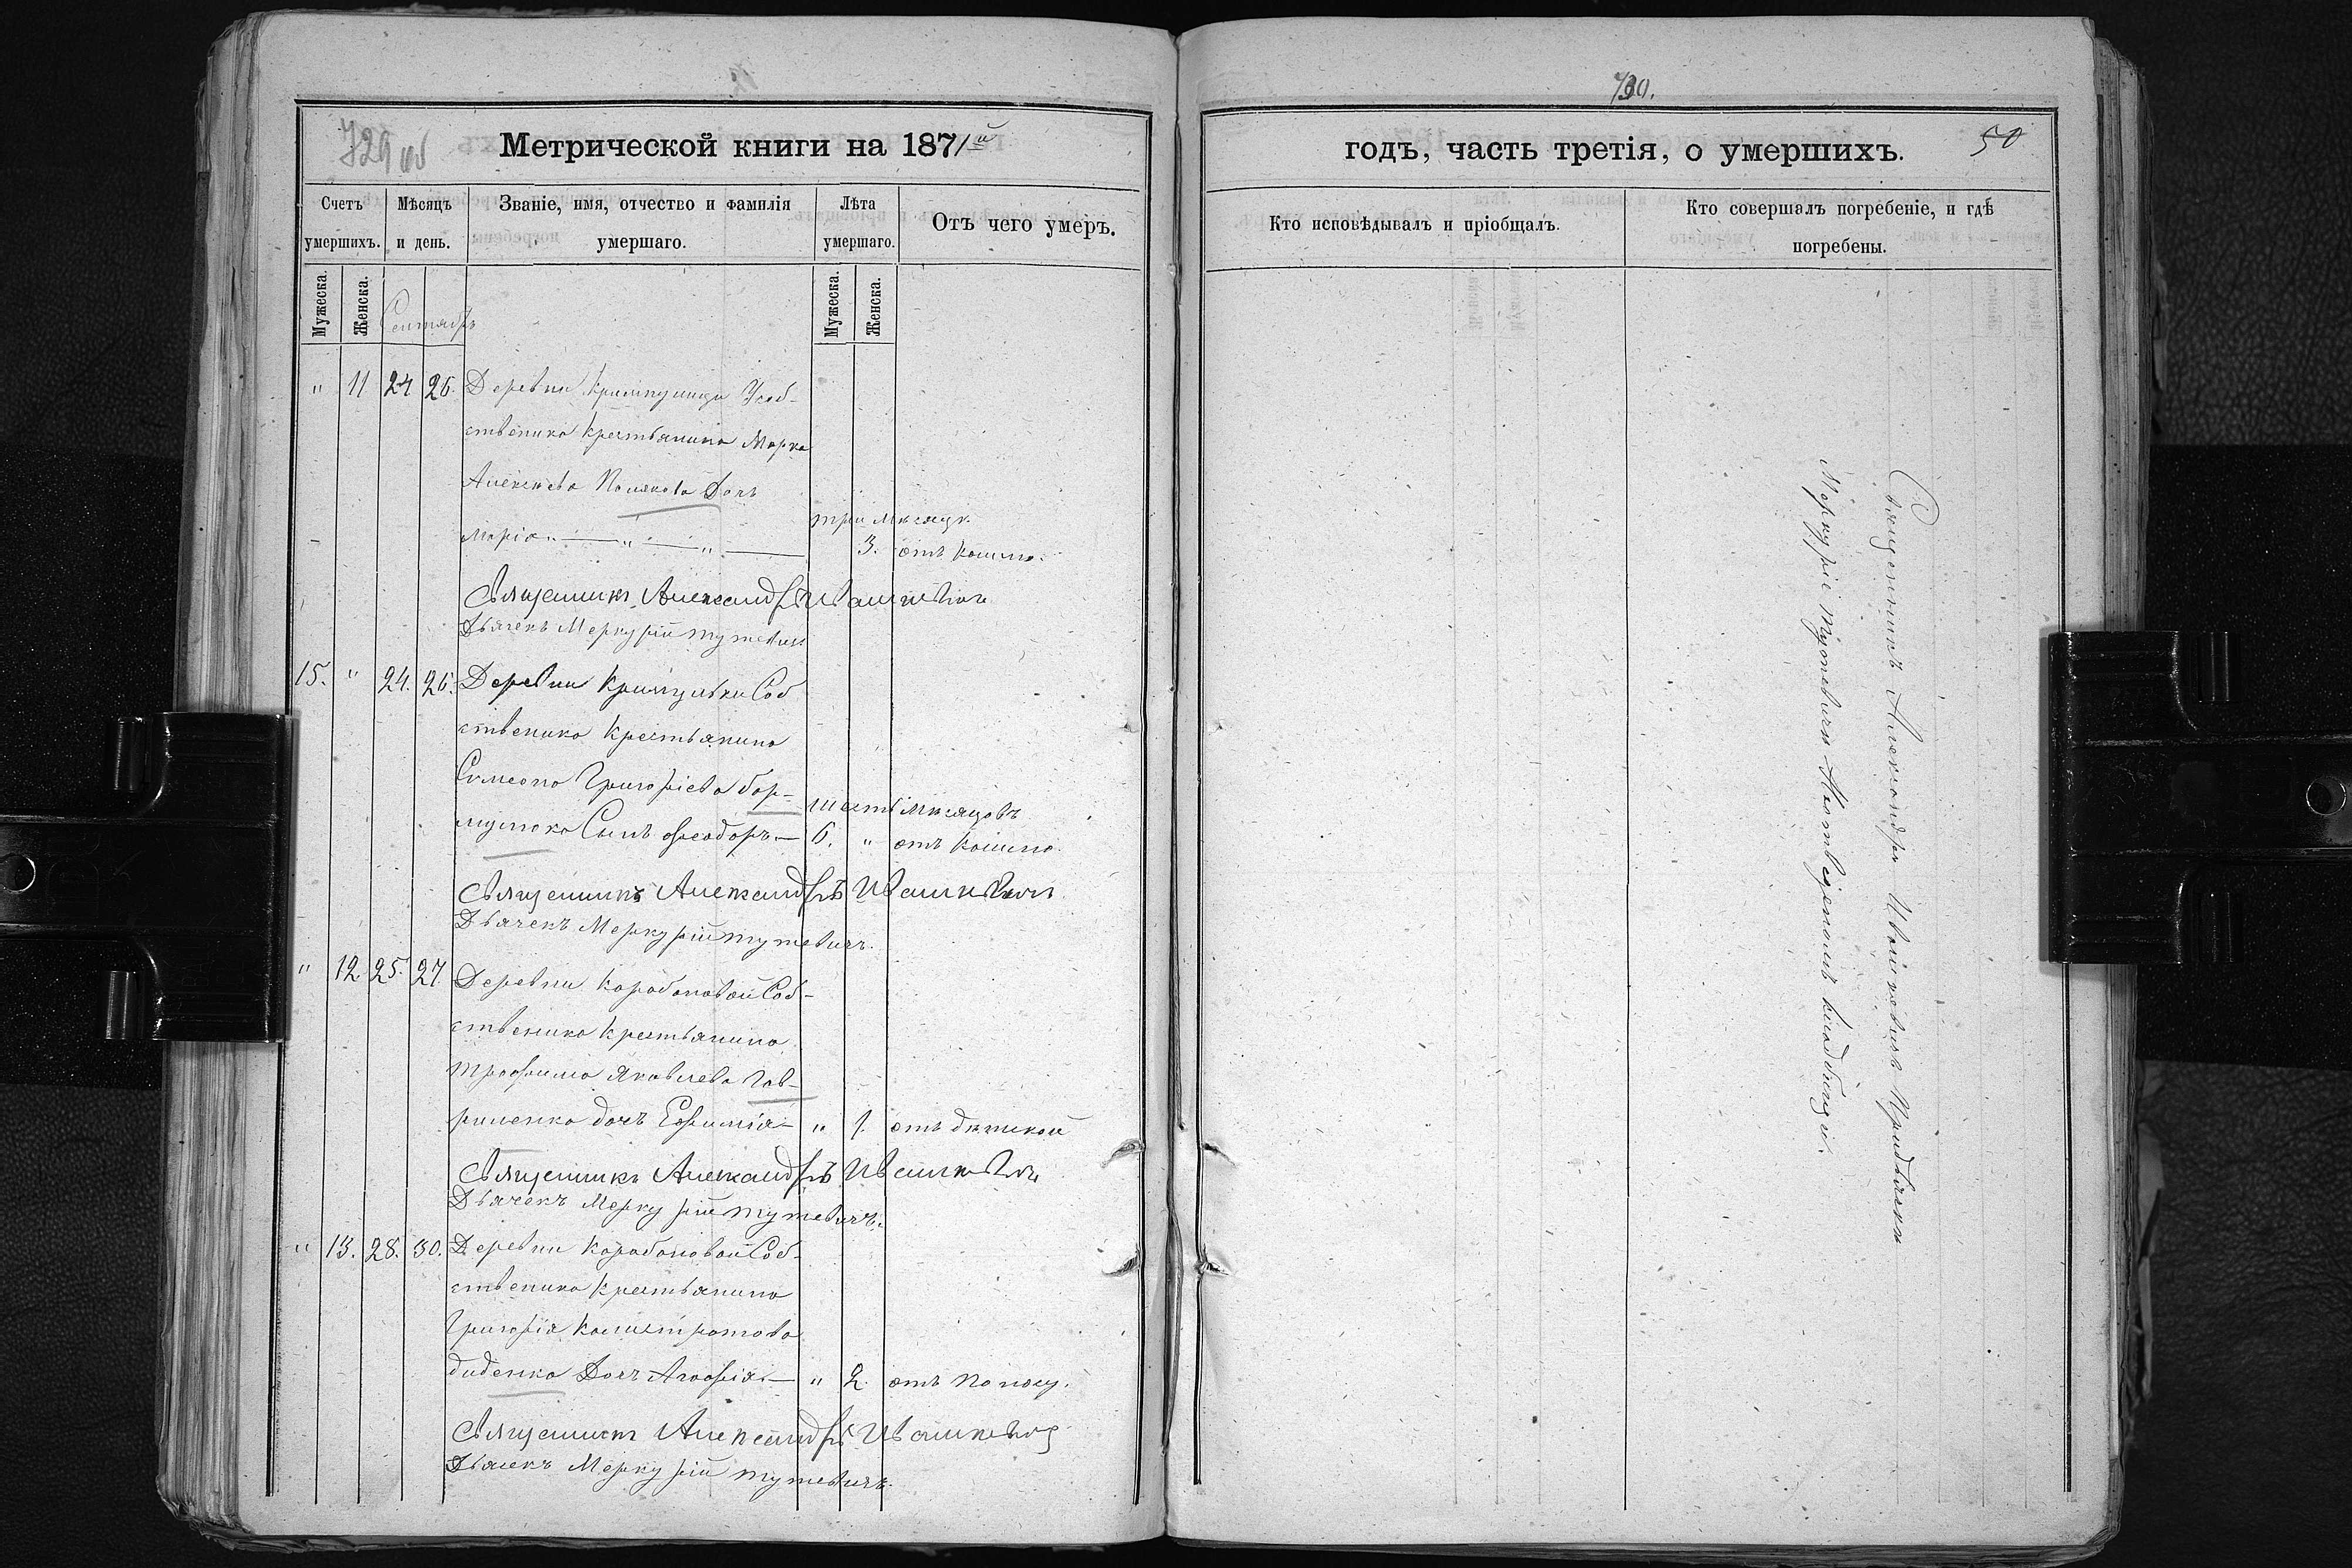 729 об
Метрической книги на 1871й
Счетъ умершихъ.
Мѣсяцъ и день.
Званіе, имя, отчество и фамилія умершаго.
Лѣта умершаго.
Отъ чего умеръ.
Мужеска.
Женска.
Сентябрь
Мужеска.
Женска.
" 11 24 26. Деревни Усоб-
ственика Крестьянина Марка
Алексѣева Полякова Дочь
три мѣсяца
Марія " " 3. отъ кашлю.
Священникъ Александръ Ивашкевичъ
Дьячекъ Меркурій Тутевичъ
15. " 24. 26. Деревни Соб
ственика Крестьянина
Симеона Григоріева Бор-
шесть мѣсяцовъ
Сынъ Феодоръ 6. " отъ кашлю.
Священникъ Александръ Ивашкевичъ
Дьячекъ Меркурій Тутевичъ.
" 12. 25. 27. Деревни Карабановой Соб-
ственика Крестьянина
Трофима Яковлева Гав-
риленка дочь Ефимія " 1. отъ дѣтской
Священникъ Александръ Ивашкевичъ
Дьячекъ Меркурій Тутевичъ.
" 13. 28. 30. Деревни Карабановой Соб-
ственика Крестьянина
Григорія Калистратова
Диденка Дочь Агафія " 2. отъ поносу.
Священникъ Александръ Ивашкевичъ
Дьячекъ Меркурій Тутевичъ.
730.
годъ, часть третія, о умершихъ.
50
Кто исповѣдывалъ и пріобщалъ.
Кто совершалъ погребеніе, и гдѣ погребены.
Священникъ Александръ Ивашкевичъ Придьячкѣ
Меркуріе Тутевичи кладбищѣ.